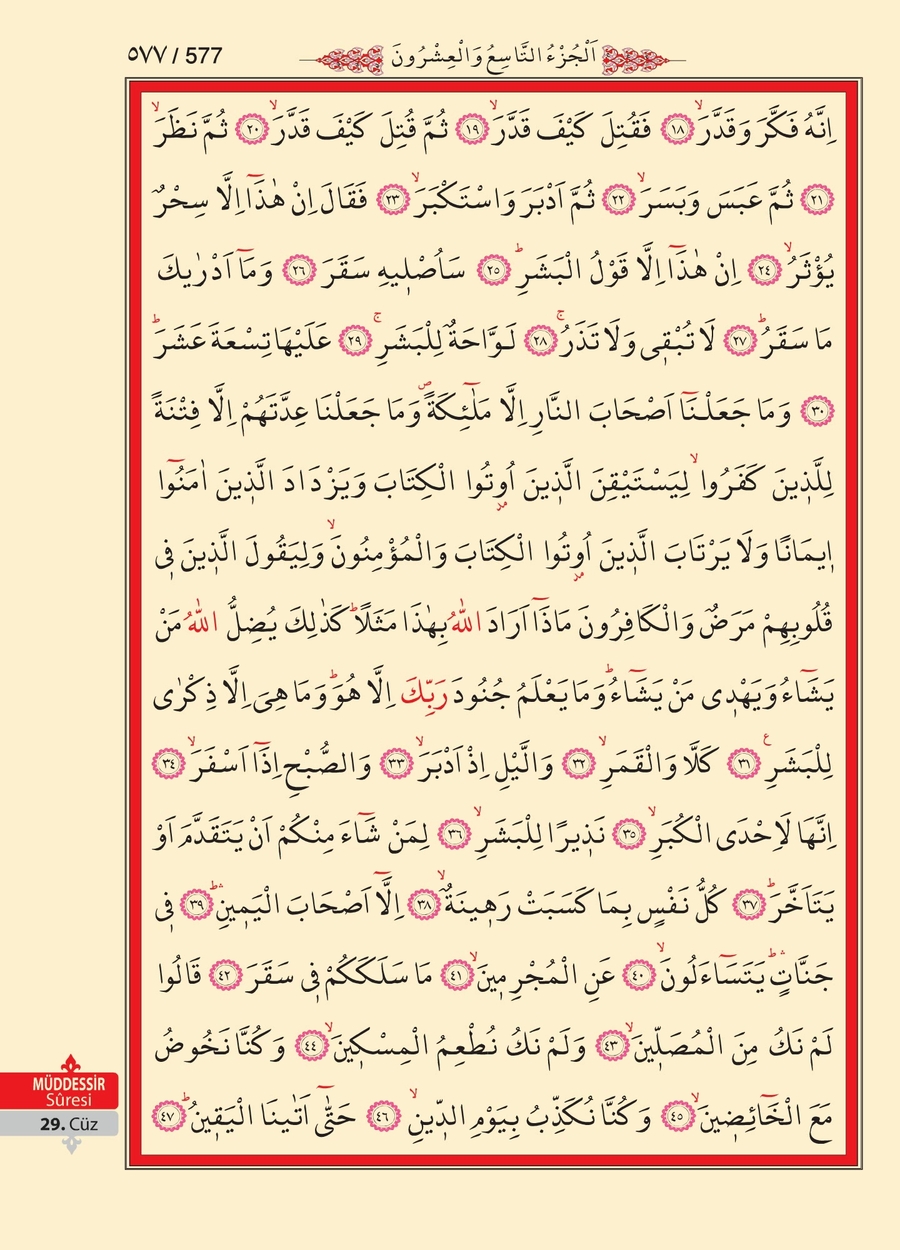 ٥٧٧ / 577
اَلْجُزْءُ التَّاسِعُ وَالْعِشْرُونَ
اِنَّهُ فَكَّرَ وَقَدَّرَۙ ﴿١٨﴾ فَقُتِلَ كَيْفَ قَدَّرَۙ ﴿١٩﴾ ثُمَّ قُتِلَ كَيْفَ قَدَّرَۙ ﴿٢٠﴾ ثُمَّ نَظَرَۙ
﴿٢١﴾ ثُمَّ عَبَسَ وَبَسَرَۙ ﴿٢٢﴾ ثُمَّ اَدْبَرَ وَاسْتَكْبَرَۙ ﴿٢٣﴾ فَقَالَ اِنْ هٰذَٓا اِلَّا سِحْرٌ
يُؤْثَرُۙ ﴿٢٤﴾ اِنْ هٰذَٓا اِلَّا قَوْلُ الْبَشَرِؕ ﴿٢٥﴾ سَاُصْلِيهِ سَقَرَ ﴿٢٦﴾ وَمَٓا اَدْرٰيكَ
مَا سَقَرُؕ ﴿٢٧﴾ لَا تُبْقِى وَلَا تَذَرُۚ ﴿٢٨﴾ لَوَّاحَةٌ لِلْبَشَرِۚ ﴿٢٩﴾ عَلَيْهَا تِسْعَةَ عَشَرَؕ
﴿٣٠﴾ وَمَا جَعَلْنَٓا اَصْحَابَ النَّارِ اِلَّا مَلٰٓئِكَةًۖ وَمَا جَعَلْنَا عِدَّتَهُمْ اِلَّا فِتْنَةً
لِلَّذِينَ كَفَرُواۙ لِيَسْتَيْقِنَ الَّذِينَ اُوتُوا الْكِتَابَ وَيَزْدَادَ الَّذِينَ اٰمَنُٓوا
اِيمَانًا وَلَا يَرْتَابَ الَّذِينَ اُوتُوا الْكِتَابَ وَالْمُؤْمِنُونَۙ وَلِيَقُولَ الَّذِينَ فِى
قُلُوبِهِمْ مَرَضٌ وَالْكَافِرُونَ مَاذَٓا اَرَادَ اللّٰهُ بِهٰذَا مَثَلًاؕ كَذٰلِكَ يُضِلُّ اللّٰهُ مَنْ
يَشَٓاءُ وَيَهْدِى مَنْ يَشَٓاءُؕ وَمَا يَعْلَمُ جُنُودَ رَبِّكَ اِلَّا هُوَؕ وَمَا هِىَ اِلَّا ذِكْرٰى
لِلْبَشَرِࣖ ﴿٣١﴾ كَلَّا وَالْقَمَرِۙ ﴿٣٢﴾ وَالَّيْلِ اِذْ اَدْبَرَۙ ﴿٣٣﴾ وَالصُّبْحِ اِذَٓا اَسْفَرَۙ ﴿٣٤﴾
اِنَّهَا لَاِحْدَى الْكُبَرِۙ ﴿٣٥﴾ نَذِيرًا لِلْبَشَرِۙ ﴿٣٦﴾ لِمَنْ شَٓاءَ مِنْكُمْ اَنْ يَتَقَدَّمَ اَوْ
يَتَاَخَّرَؕ ﴿٣٧﴾ كُلُّ نَفْسٍ بِمَا كَسَبَتْ رَهِينَةٌۙ ﴿٣٨﴾ اِلَّٓا اَصْحَابَ الْيَمِينِۛؕ ﴿٣٩﴾ فِى
جَنَّاتٍۛؕ يَتَسَٓاءَلُونَۙ ﴿٤٠﴾ عَنِ الْمُجْرِمِينَۙ ﴿٤١﴾ مَا سَلَكَكُمْ فِى سَقَرَ ﴿٤٢﴾ قَالُوا
لَمْ نَكُ مِنَ الْمُصَلِّينَۙ ﴿٤٣﴾ وَلَمْ نَكُ نُطْعِمُ الْمِسْكِينَۙ ﴿٤٤﴾ وَكُنَّا نَخُوضُ
مَعَ الْخَٓائِضِينَۙ ﴿٤٥﴾ وَكُنَّا نُكَذِّبُ بِيَوْمِ الدِّينِۙ ﴿٤٦﴾ حَتّٰٓى اَتٰينَا الْيَقِينُؕ ﴿٤٧﴾
MÜDDESSİR
Sûresi
29. Cüz